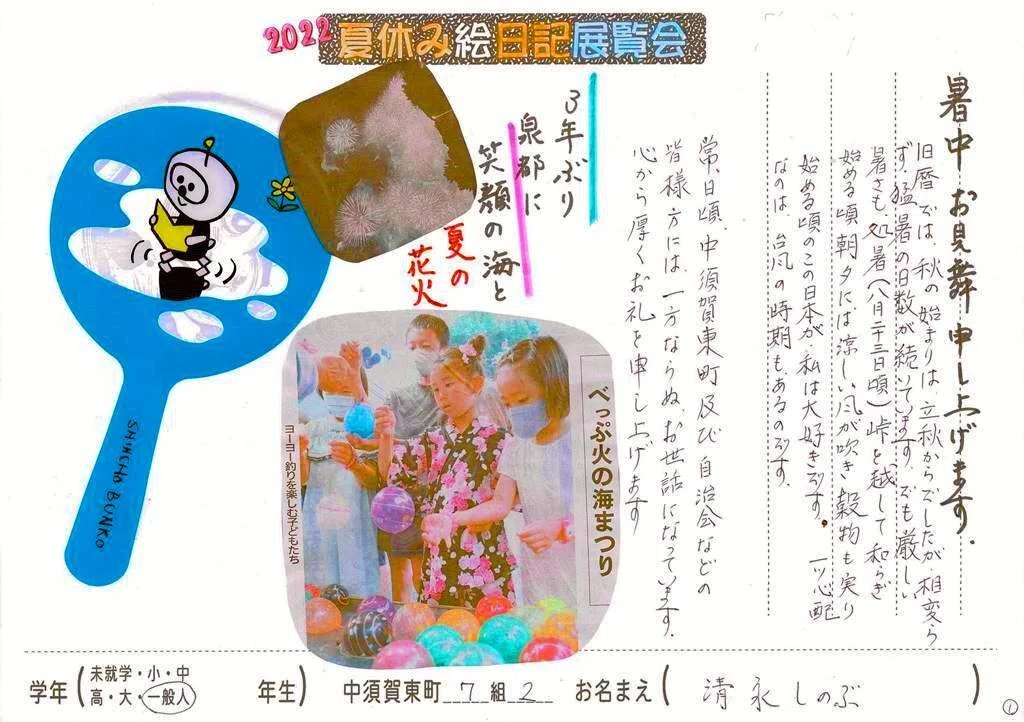 2022 夏休み絵日記展覧会
暑中お見舞申し上げます.
旧暦では、秋の始まりは、立秋からでしたが、相変ら
ず、猛暑の日数が続いています。でも厳しい
暑さも、処暑(八月二十三日頃)峠を越して和らぎ
始める頃、朝夕には涼しい風が吹き穀物も実り
始める頃のこの日本が、私は大好きです。一ツ心配
なのは、台風の時期もあるのです。
常日頃、中須賀東町及び自治会などの
皆様方には一方ならぬ、お世話になっています.
心から厚くお礼を申し上げます
3年ぶり
泉都に
笑顔の海と
夏の
花火
SHINCHO BUNKO
べっぷ火の海まつり
ヨーヨー釣りを楽しむ子どもたち
学年(未就学・小・中
高・大・一般人 年生) 中須賀東町 7 組 2 お名まえ( 清永しのぶ )
1